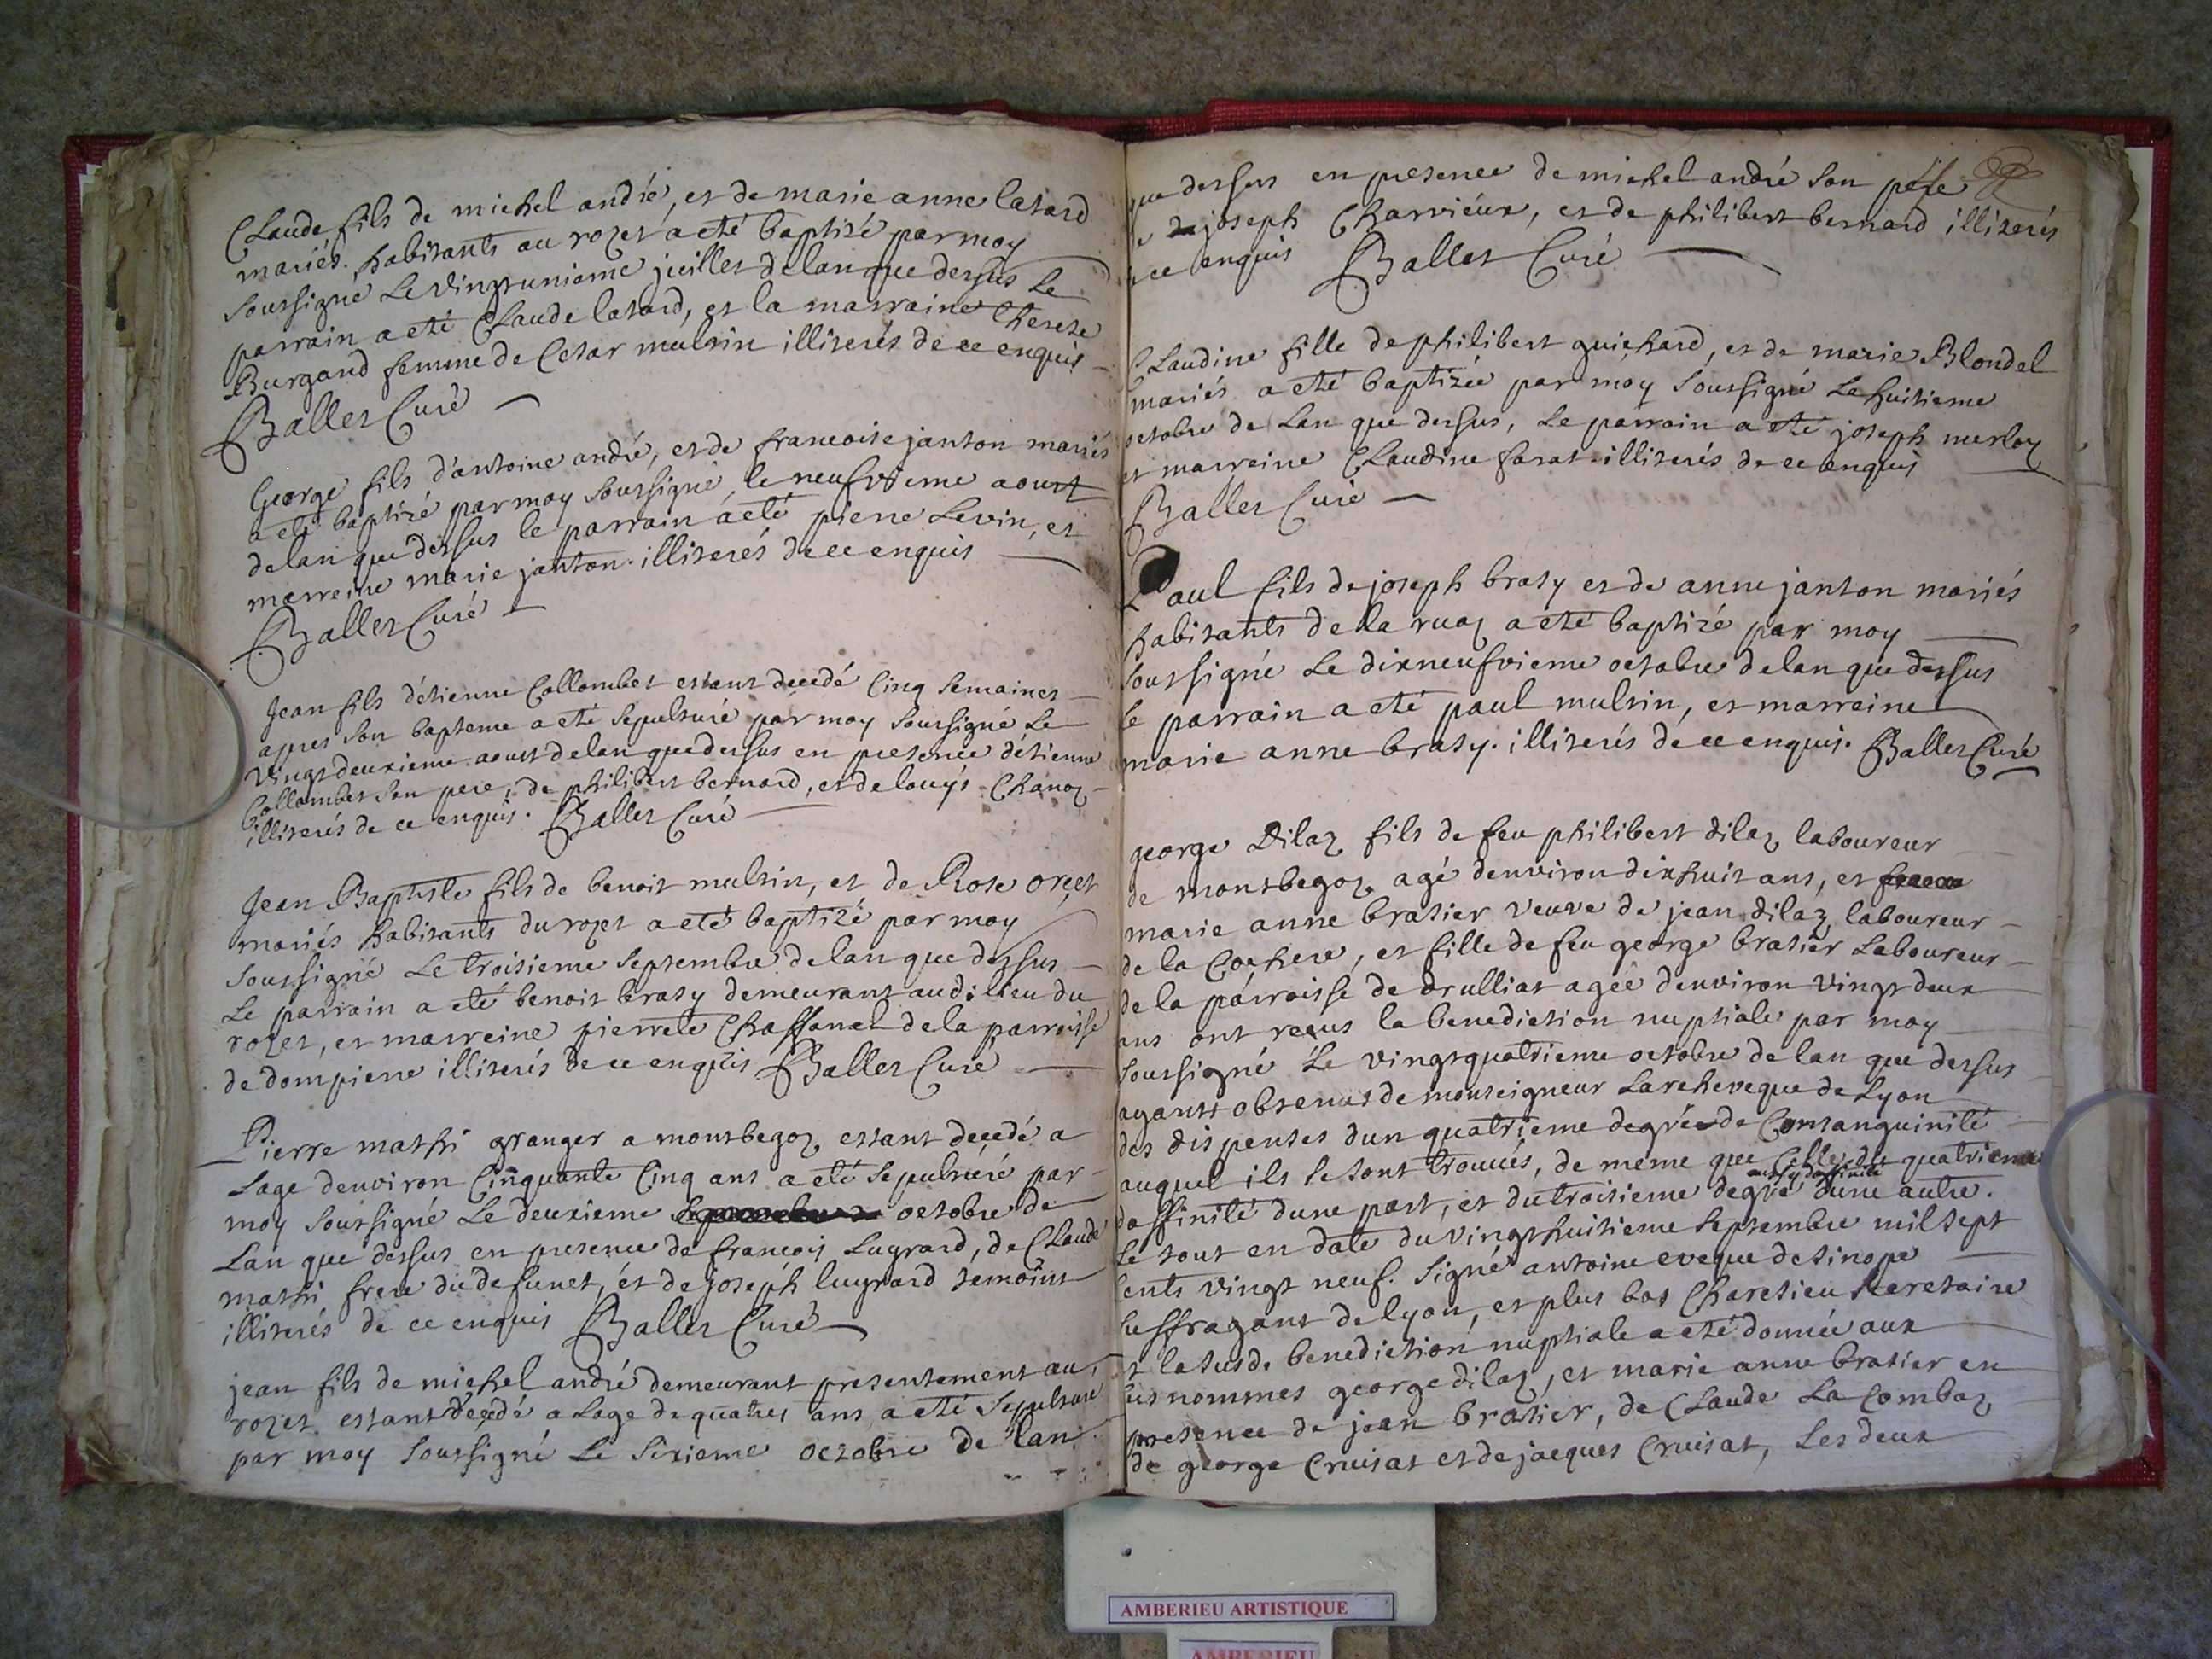 Claude fils de michel andré, et de marie anne latard
mariés. habitants au rozet a eté baptizé par moy
soussigné Le vingtunieme juillet delan que dessus Le
parrain a eté Claude latard, et la marraine therese
Burgand femme de Cesar multin illiterés de ce enquis
Ballet Curé
George fils d'antoine andré, et de francoise janton mariés
a eté baptizé par moy soussigné, le neufvieme aoust
delan que dessus le parrain a eté pierre Levin, et
marreine marie janton. illiterés de ce enquis
Ballet Curé
Jean fils d'étienne Collombet estant decedé Cinq semaines
apres son bapteme a eté sepulturé par moy soussigné Le
vingtdeuxieme aoust delan que dessus en presence d'étienne
Collombet son pere, de philibert bernard, et de louys Chanoz
illiterés de ce enquis. Ballet Curé
Jean Baptiste fils de benoit multin, et de Rose orcet
mariés habitants du rozet a eté baptizé par moy
soussigné Le troisieme septembre delan que dessus
Le parrain a eté benoit brasy demeurant aud. lieu du
rozet, et marreine pierrete Chaffanel dela parroisse
de dompierre illiterés de ce enquis Ballet Curé
Pierre mathi granger a montbegoz estant decedé a
Lage denviron Cinquante Cinq ans a eté sepulturé par
moy soussigné Le deuxieme octobre de
Lan que dessus en presence de francois Lugrard, de Claude
mathi frere du defunct, et de joseph lugrard temoins
illiterés de ce enquis Ballet Curé
jean fils de michel andré demeurant presentement au
rozet estant decedé a Lage de quatres ans a eté sepulturé
par moy soussigné Le sixieme octobre de lan
que dessus en presence de michel andré son pere
de joseph Charvieux, et de philibert bernard illiterés
de ce enquis Ballet Curé
Claudine fille de philibert guichard, et de marie Blondel
mariés a eté baptizée par moy soussigné Le huitieme
octobre de Lan que dessus, Le parrain a eté joseph merloz
et marreine Claudine farat. illiterés de ce enquis
Ballet Curé
Paul fils de joseph brasy et de anne janton mariés
habitants de la ruaz a eté baptizé par moy
soussigné Le dixneufvieme octobre delan que dessus
le parrain a eté paul multin, et marreine
marie anne brasy. illiterés de ce enquis. Ballet Curé
george Dilaz fils de feu philibert dilaz laboureur
de montbegoz agé denviron dixhuit ans, et
marie anne brasier veuve de jean dilaz laboureur
de la Cochere, et fille de feu george brasier Laboureur
de la parroisse de druillat agée denviron vingtdeux
ans ont reçus la benediction nuptiale par moy
soussigné Le vingtquatrieme octobre de lan que dessus
ayants obtenus de monseigneur Larcheveque de Lyon
des dispenses dun quatrieme degré de Consanguinité
auquel ils se sont trouvés, de meme que Celle du quatrieme
aussy daffinité
daffinité dune part, et du troisieme degré dune autre.
Le tout en date du vingthuitieme septembre mil sept
cents vingt neuf. signé antoine eveque de sinope
suffragant de lyon, et plus bas Charetieu secretaire
et la susd. benediction nuptiale a eté donnée aux
susnommes george dilaz, et marie anne brasier en
presence de jean brasier, de Claude La Combaz
de george Cruisat et de jacques Cruisat, Les deux
AMBERIEU ARTISTIQUE
AMBERIEU